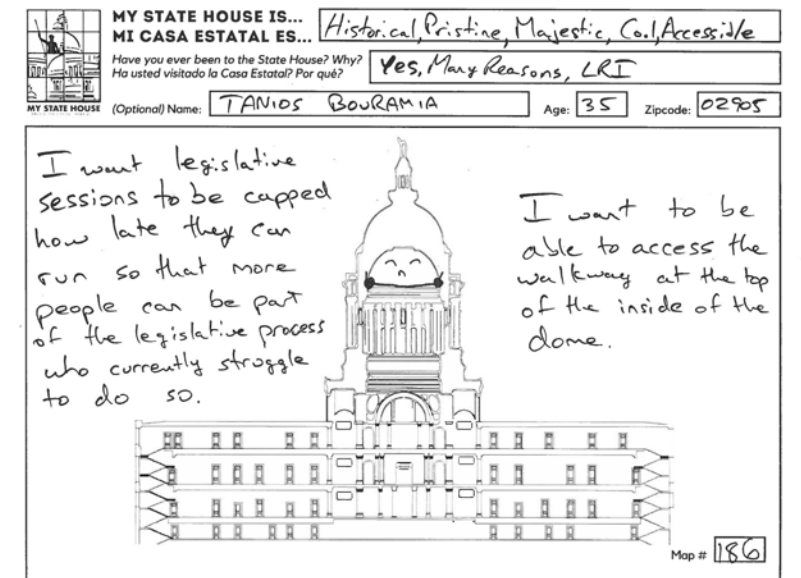 MY STATE HOUSE IS...
MI CASA ESTATAL ES...
Historical, Pristine, Majestic, Cool, Accessible
Have you ever been to the State House? Why?
Ha usted visitado la Casa Estatal? Por qué?
Yes, Many Reasons, LRI
MY STATE HOUSE
(Optional) Name: TANIOS BOURAMIA
Age: 35
Zipcode: 02905
I want legislative
sessions to be capped
how late they can
run so that more
people can be part
of the legislative process
who currently struggle
to do so.
I want to be
able to access the
walkway at the top
of the inside of the
dome.
Map # 186